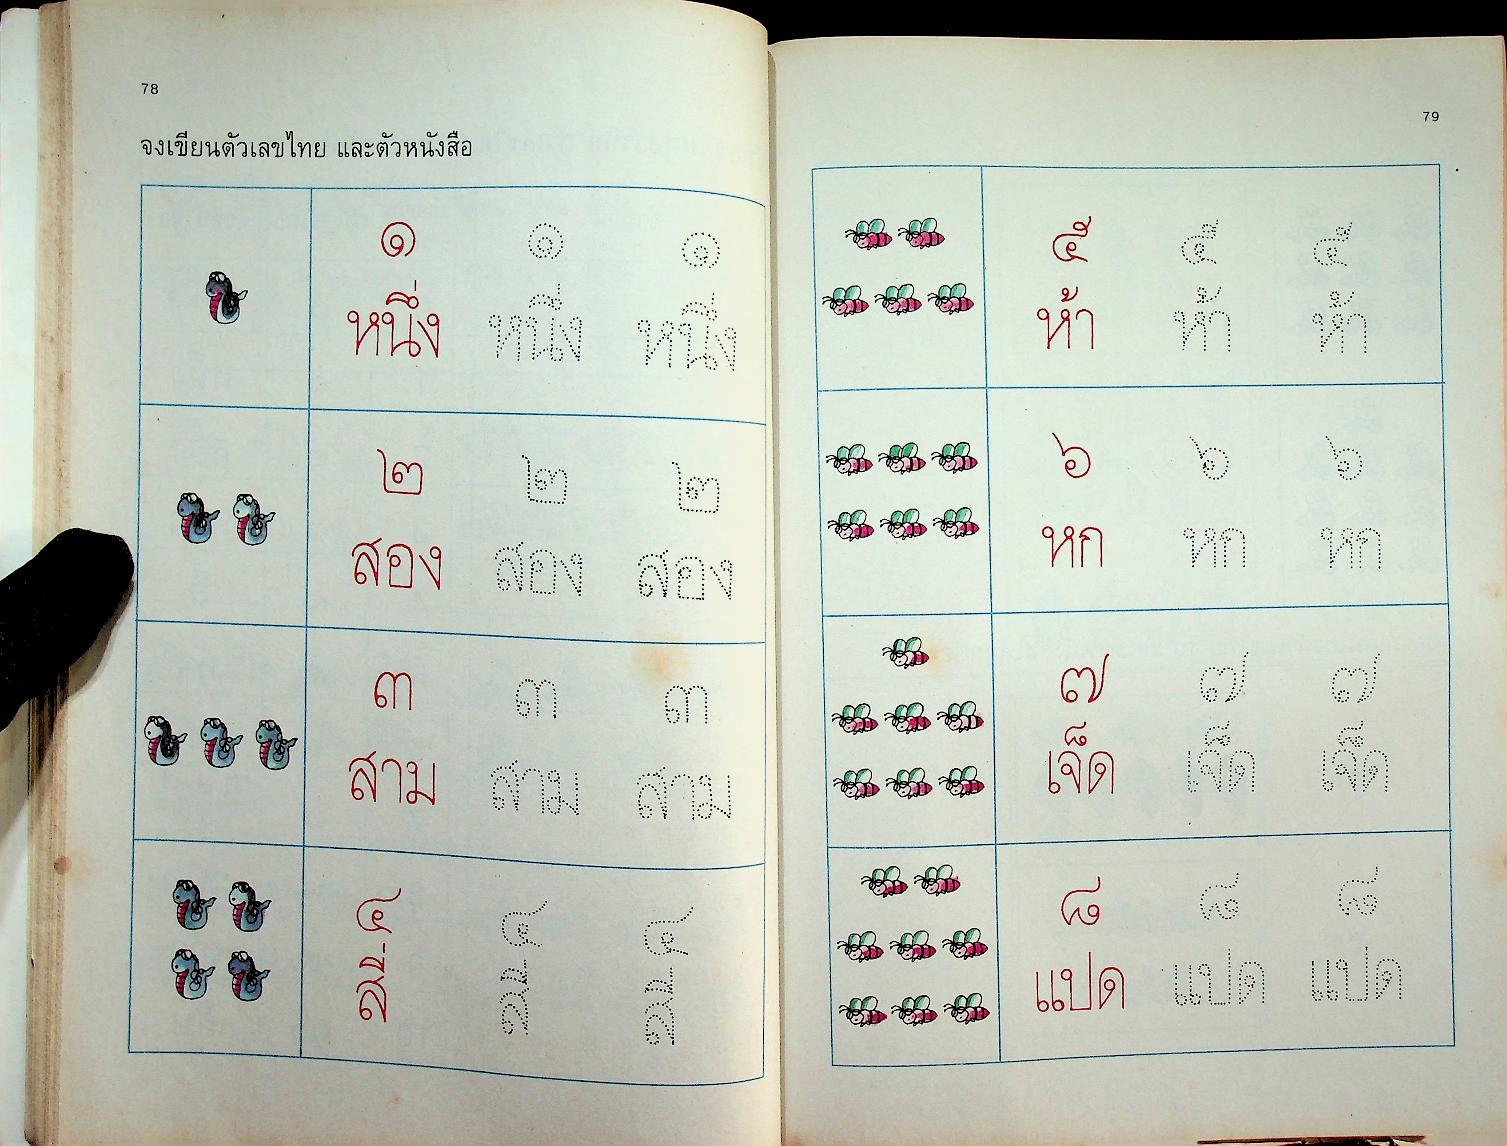 78
จงเขียนตัวเลขไทย และตัวหนังสือ
๑ ๑ ๑
หนึ่ง หนึ่ง หนึ่ง
๒ ๒ ๒
สอง สอง สอง
๓ ๓ ๓
สาม สาม สาม
๔ ๔ ๔
สี่ สี่ สี่
79
๕ ๕ ๕
ห้า ห้า ห้า
๖ ๖ ๖
หก หก หก
๗ ๗ ๗
เจ็ด เจ็ด เจ็ด
๘ ๘ ๘
แปด แปด แปด